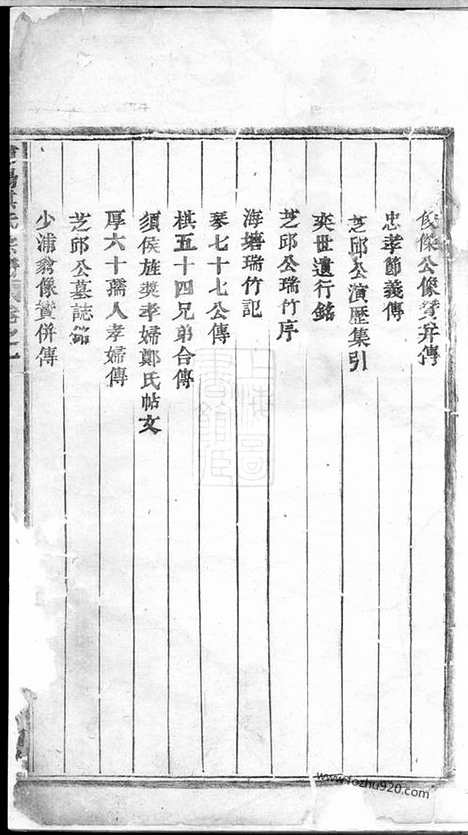 俊傑公像贊并傳
忠孝節義傳
芝邱公演歷集引
奕世遺行銘
芝邱公瑞竹序
海壖瑞竹記
琴七十七公傳
棋五十四兄弟合傳
須侯旌獎孝婦鄭氏帖文
厚六十孺人孝婦傳
芝邱公墓誌銘
少浦翁像贊併傳
上海圖書館藏
www.fozhu920.com